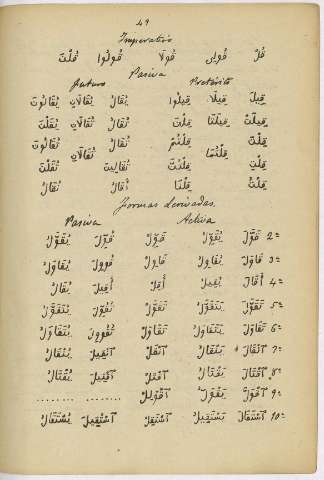 49
Imperativo
قُلْ قُولِى قُولَا قُولُوا قُلْنَ
Pasiva
Futuro Pretérito
قِيلَ قِيلَا قِيلُوا يُقَالُ يُقَالَانِ يُقَالُونَ
قِيلَتْ قِيلَتَا قِلْنَ تُقَالُ تُقَالَانِ يُقَلْنَ
قِلْتَ قِلْتُمَا قِلْتُمْ تُقَالُ تُقَالَانِ تُقَالُونَ
قِلْتِ قِلْتُنَّ تُقَالِينَ تُقَلْنَ
قِلْتُ قِلْنَا أُقَالُ نُقَالُ
Formas derivadas
Pasiva Activa
2ª قَوَّلَ يُقَوِّلُ قَوِّلْ قُوِّلَ يُقَوَّلُ
3ª قَاوَلَ يُقَاوِلُ قَاوِلْ قُووِلَ يُقَاوَلُ
4ª أَقَالَ يُقِيلُ أَقِلْ أُقِيلَ يُقَالُ
5ª تَقَوَّلَ يَتَقَوَّلُ تَقَوَّلْ تُقُوِّلَ يُتَقَوَّلُ
6ª تَقَاوَلَ يَتَقَاوَلُ تَقَاوَلْ تُقُووِلَ يُتَقَاوَلُ
7ª اَنْقَالَ يَنْقَالُ اَنْقَلْ اَنْقِيلَ يُنْقَالُ
8ª اَقْتَالَ يَقْتَالُ اَقْتَلْ اَقْتِيلَ يُقْتَالُ
9ª اَقْوَلَّ يَقْوَلُّ اَقْوَلِلْ ........ ........
10ª اَسْتَقَالَ يَسْتَقِيلُ اَسْتَقِلْ اَسْتُقِيلَ يُسْتَقَالُ